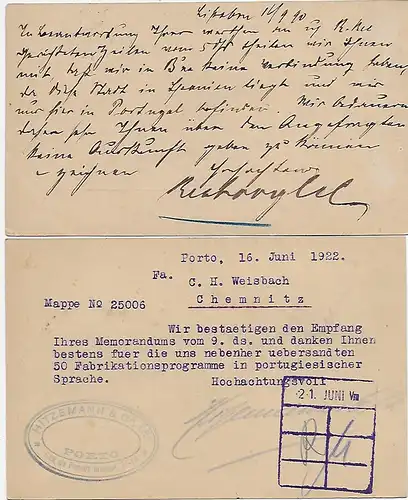 Lissabon 14/9 90
In Beantwortung Ihrer werthen an uns
gerichteten Zeilen vom 5ten theilen wir Ihnen
mit, daß wir in keine Verbindung haben,
da diese Stadt in Spanien liegt und wir
nur hier in Portugal befinden. Wir bedauern
daher sehr Ihnen über den Angefragten
keine Auskunft geben zu können
zeichnen Hochachtend
Porto, 16. Juni 1922.
Fa.
C. H. Weisbach
Chemnitz
Mappe No 25006
Wir bestaetigen den Empfang
Ihres Memorandums vom 9. ds. und danken Ihnen
bestens fuer die uns nebenher uebersandten
50 Fabrikationsprogramme in portugiesischer
Sprache.
Hochachtungsvoll
21. JUNI
HITZEMANN &
PORTO